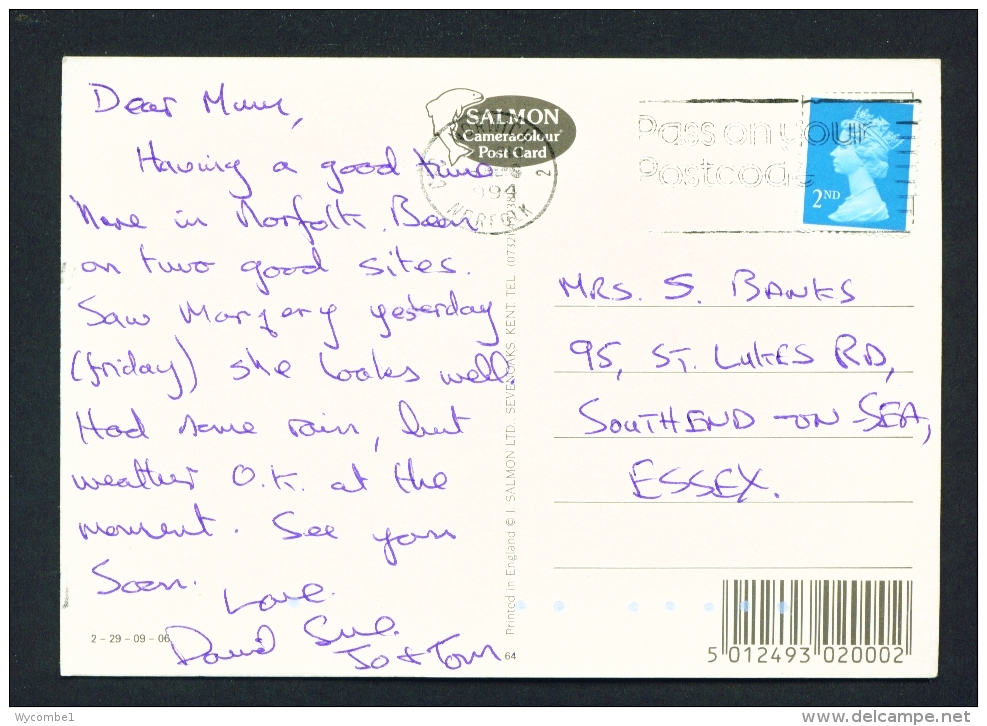 Dear Mum,
Having a good time
here in Norfolk. Been
on two good sites.
Saw Margery yesterday
(friday) she looks well.
Had some rain, but
weather O.K. at the
moment. See you
Soon.
Love
David Sue.
Jo & Tom
2 - 29 - 09 - 06
SALMON
Cameracolour
Post Card
1994
NORFOLK
2
Pass on your
Postcode
2ND
MRS. S. BANKS
95, ST. LUKES RD,
SOUTHEND-ON SEA,
ESSEX.
Printed in England © J. SALMON LTD. SEVENOAKS KENT. TEL. (0732)
64
5 012493 020002
Wycombe1
www.delcampe.net